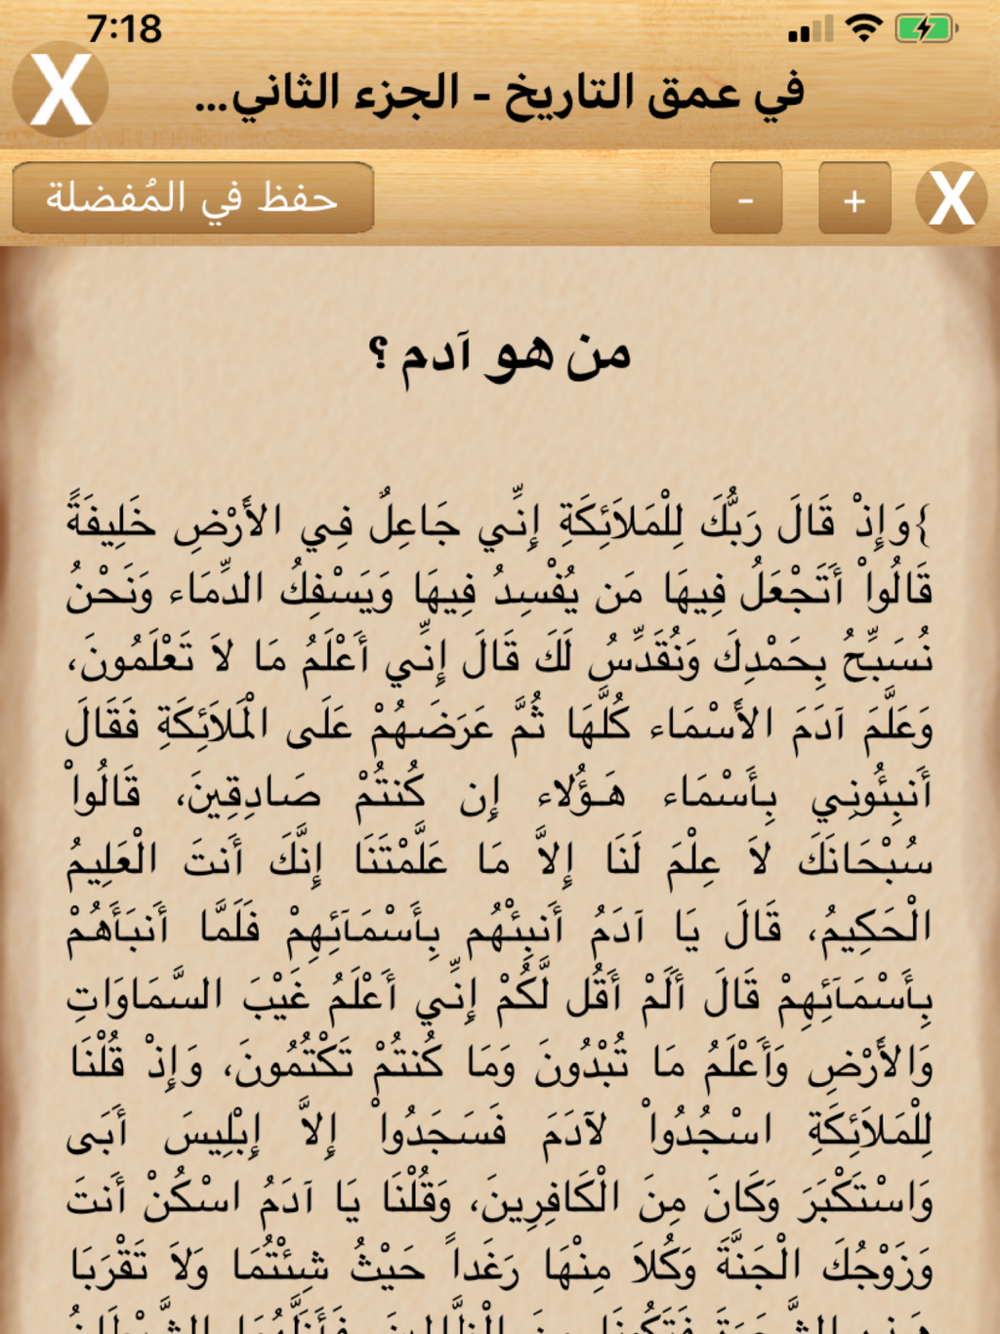 7:18
X
في عمق التاريخ - الجزء الثاني...
حفظ في المُفضلة
-
+
X
من هو آدم ؟
}وَإِذْ قَالَ رَبُّكَ لِلْمَلاَئِكَةِ إِنِّي جَاعِلٌ فِي الأَرْضِ خَلِيفَةً
قَالُواْ أَتَجْعَلُ فِيهَا مَن يُفْسِدُ فِيهَا وَيَسْفِكُ الدِّمَاء وَنَحْنُ
نُسَبِّحُ بِحَمْدِكَ وَنُقَدِّسُ لَكَ قَالَ إِنِّي أَعْلَمُ مَا لاَ تَعْلَمُونَ،
وَعَلَّمَ آدَمَ الأَسْمَاء كُلَّهَا ثُمَّ عَرَضَهُمْ عَلَى الْمَلاَئِكَةِ فَقَالَ
أَنبِئُونِي بِأَسْمَاء هَـؤُلاء إِن كُنتُمْ صَادِقِينَ، قَالُواْ
سُبْحَانَكَ لاَ عِلْمَ لَنَا إِلاَّ مَا عَلَّمْتَنَا إِنَّكَ أَنتَ الْعَلِيمُ
الْحَكِيمُ، قَالَ يَا آدَمُ أَنبِئْهُم بِأَسْمَآئِهِمْ فَلَمَّا أَنبَأَهُمْ
بِأَسْمَآئِهِمْ قَالَ أَلَمْ أَقُل لَّكُمْ إِنِّي أَعْلَمُ غَيْبَ السَّمَاوَاتِ
وَالأَرْضِ وَأَعْلَمُ مَا تُبْدُونَ وَمَا كُنتُمْ تَكْتُمُونَ، وَإِذْ قُلْنَا
لِلْمَلاَئِكَةِ اسْجُدُواْ لآدَمَ فَسَجَدُواْ إِلاَّ إِبْلِيسَ أَبَى
وَاسْتَكْبَرَ وَكَانَ مِنَ الْكَافِرِينَ، وَقُلْنَا يَا آدَمُ اسْكُنْ أَنتَ
وَزَوْجُكَ الْجَنَّةَ وَكُلاَ مِنْهَا رَغَداً حَيْثُ شِئْتُمَا وَلاَ تَقْرَبَا